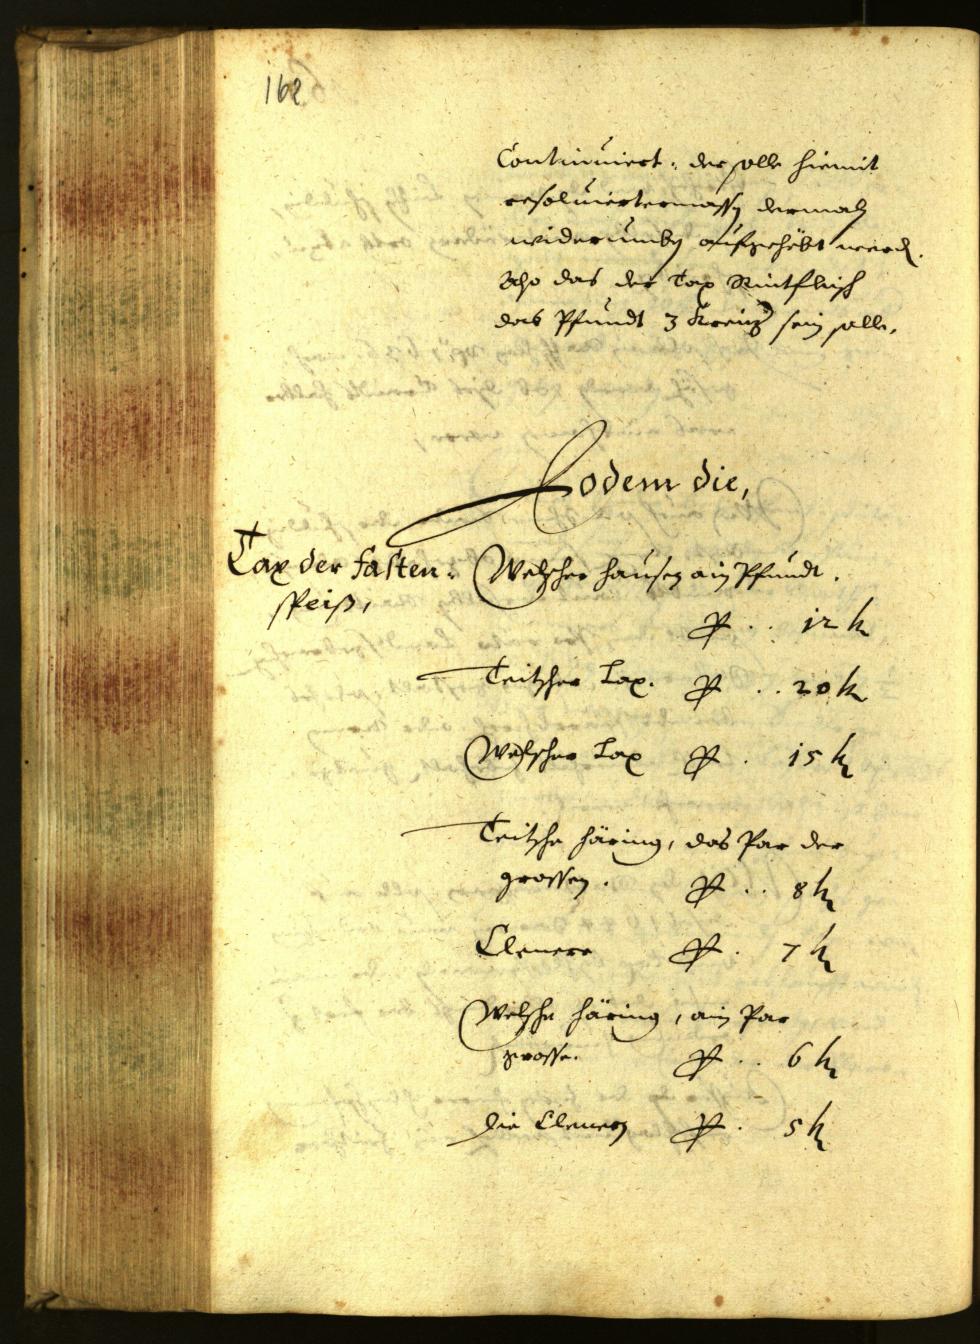 162
Continuiert, der solle hiemit
resoluiertermassen dermaln
widerumben aufgehöbt werd.
Also das der Tax Rintfleisch
das Pfundt 3 Kreuz sein solle,
Eodem die,
Tax der fasten
speiß,
Welscher hausen ain Pfundt.
P .. 12 k
Teitscher Lax. P .. 20 k
Welscher Lax P . 15 k
Teitsche häring, das Par der
grossen . P .. 8 k
Clenere P . 7 k
Welsche häring, ain Par
grosse. P .. 6 k
die Clenern P . 5 k